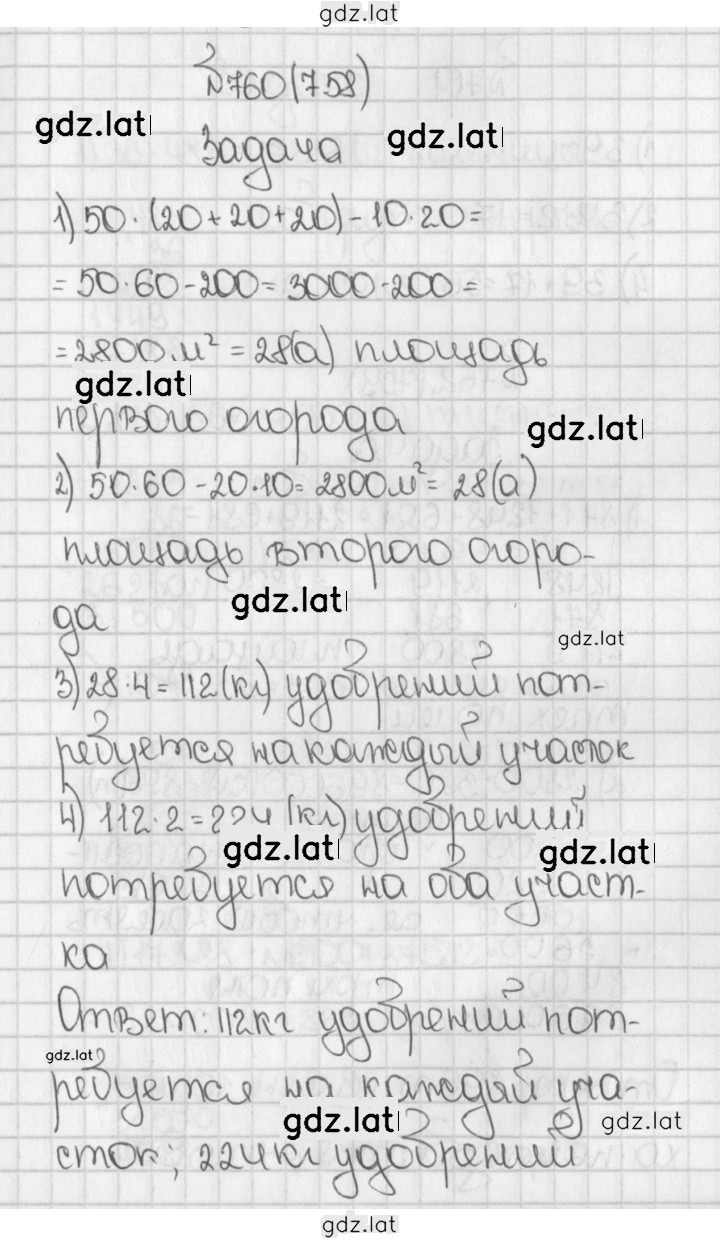 gdz.lat
№760(758)
gdz.lat
Задача
gdz.lat
1) 50·(20+20+20)-10·20=
=50·60-200=3000-200=
=2800м²=28(а) площадь
gdz.lat
первого огорода
gdz.lat
2) 50·60-20·10=2800м²=28(а)
площадь второго огоро-
gdz.lat
да
gdz.lat
3) 28·4=112(кг) удобрений пот-
ребуется на каждый участок
4) 112·2=224(кг) удобрений
gdz.lat
gdz.lat
потребуется на оба участ-
ка
Ответ: 112кг удобрений пот-
gdz.lat
ребуется на каждый уча-
gdz.lat
gdz.lat
сток; 224кг удобрений
gdz.lat